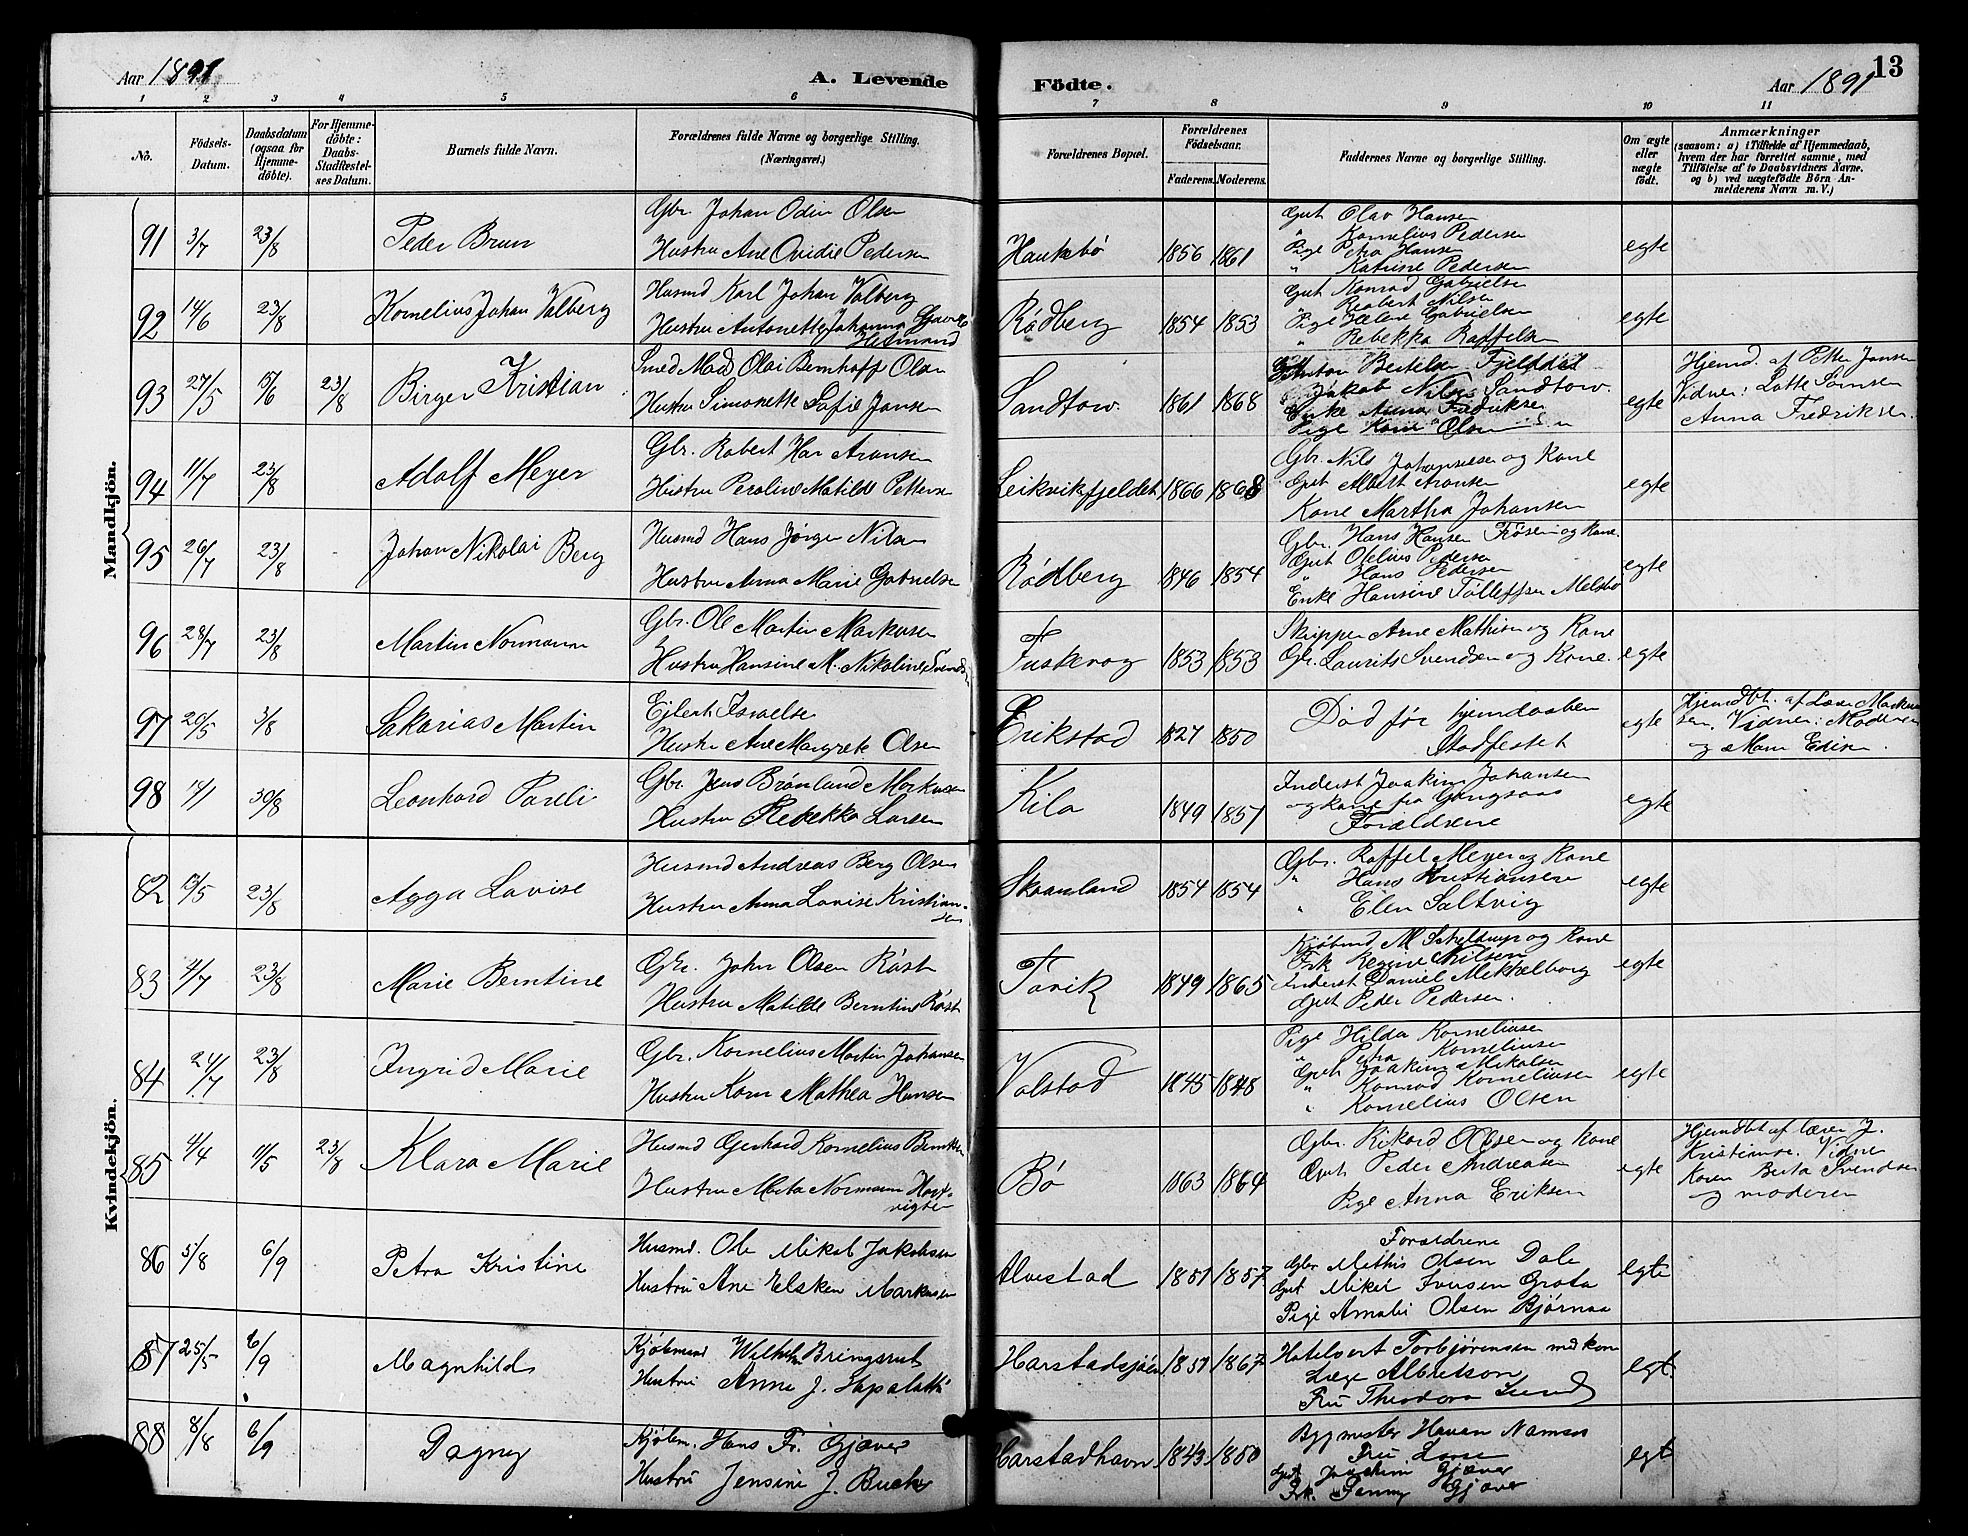 Aar 1891
A. Levende
Födte.
Aar 1891
13
1 2 3 4 5 6 7 8 9 10 11
No.
Födsels-Datum.
Daabsdatum (ogsaa for Hjemmedöbte).
For Hjemmedöbte: Daabs-Stadfæstelses Datum.
Barnets fulde Navn.
Forældrenes fulde Navne og borgerlige Stilling. (Næringsvei.)
Forældrenes Bopæl.
Forældrenes Födselsaar.
Faderens. Moderens.
Faddernes Navne og borgerlige Stilling.
Om ægte eller uægte födt.
Anmærkninger
(saasom: a) i Tilfælde af Hjemmedaab, hvem der har forrettet samme, med Tilföielse af to Daabsvidners Navne, og b) ved uægtefödte Börn Anmelderens Navn m. V.)
Mandkjön.
91 3/7 23/8 Peder Brun
Gbr Johan Odin Olsen
Hustru Ane Ovidie Pedersen
Haukebø 1856 1861
Gut Olav Hansen
" Kornelius Pedersen
Pige Petra Hansen
" Katrine Pedersen
egte
92 14/6 23/8 Kornelius Johan Valberg
Husmd Karl Johan Valberg
Hustru Antonette Johanna
Rødberg 1854 1853
Gut Konrad Gabrielse
" Robert Nilsen
Pige Helene Gabrielsen
" Rebekka Raffelsen
egte
93 27/5 15/6 23/8 Birger Kristian
Smed Mads Olai Bernhoff Olsen
Hustru Simonette Sofie Jansen
Sandtow. 1861 1868
Anton Bertelsen
Jakob Nilsen Sandtow.
Enke Anna Fredriksen
Pige Olsen
egte
Hjemd. af Petter Jansen
Vidner: Lotte
Anna Fredriksen.
94 11/7 23/8 Adolf Meyer
Gbr. Robert Aronsen
Hustru Peroline Matilde Petterse
Leikvikfjeldet 1866 1868
Gbr. Nils og Kone
Gut Albert Aronsen
Kone Martha Johansen
egte
95 26/7 23/8 Johan Nikolai Berg
Husmd Hans Jørgen Nilsen
Hustru Anna Marie Gabrielse
Rødberg 1846 1854
Gbr. Hans Hansen og Kone.
Gut Pedersen
" Hans Pedersen
Enke Hansine
egte
96 28/7 23/8 Martin Normann
Gbr. Ole Martin Markusen
Hustru Hansine M. Nikoline Svendsen
Fuskevog 1853 1853
Skipper Arne Mathisen og Kone
Gbr. Laurits Svendsen og Kone.
egte
97 20/5 3/8 Sakarias Martin
Eilert Israelse
Hustru Ane Margrete Olsen
Erikstad 1827 1850
Død før hjemdaaben
Stadfestet
egte
Vidner: Moderen
98 30/8 Leonhard Pareli
Gbr. Jens Brønlund Markusen
Hustru Rebekka Larsen
Kila 1849 1857
Inderst Joakim Johansen
og kone fra Gangsaas
Forældrene
egte
Kvindekjön.
82 13/5 23/8 Agga Lovise
Husmd Andreas Berg Olsen
Hustru Anna Lovise Kristiansen
Skaanland 1854 1854
Gbr. Raffel Meyer og Kone
" Hans Kristiansen
" Elen Saltvig
egte
83 4/7 23/8 Marie Berntine
Gbr. John Olsen Røst
Hustru Matilde Berntine Røst
Tovik 1849 1865
Kjøbmd M Scheldrup og Kone
Frk Regine Nilsen
Inderst Daniel Mekkelborg
Gut Peder Pedersen.
egte
84 24/7 23/8 Ingrid Marie
Gbr. Kornelius Martin Johansen
Hustru Karn Mathea Hansen
Volstad 1845 1848
Pige Hilda Korneliusen
" Petra Korneliusen
Gut Joakim Mikalsen
" Konrad Korneliusen
" Kornelius Olsen
egte
85 4/4 11/5 23/8 Klara Marie
Husmd Gerhard Kornelius Berntsen
Hustru Marta Normann Hartvigsen
Bø 1863 1864
Gbr. Rikard Olsen og Kone
Gut Peder Andreasen
Pige Anna Eriksen
egte
Hjemdbt af lærer J.
Kristianse. Vidner
Karen Berta Svendsen
og moderen
86 5/8 6/9 Petra Kristine
Husmd. Ole Mikal Jakobsen
Hustru Ane Elsken Markusen
Alvestad 1851 1857
Forældrene
Gbr Mathis Olsen Dale
Gut Mikal Iversen Grøta
Pige Amalie Olsen Bjørnaa
egte
87 25/5 6/9 Magnhild
Kjøbmand Wilhelm Bringsrud
Hustru Anne J.
Harstadsjøen 1857 1867
Torbjørensen med kone
Læge Albretson
Fru Theodora Lund
egt.
88 8/8 6/9 Dagny
Kjøbm. Hans Fr. Gjæver
Hustru Jensine J. Buck
Harstadhavn 1843 1850
Bygmester Haven Namsos
Fru
Gut Joachim Gjæver
Frk. Fanny Gjæver
egt